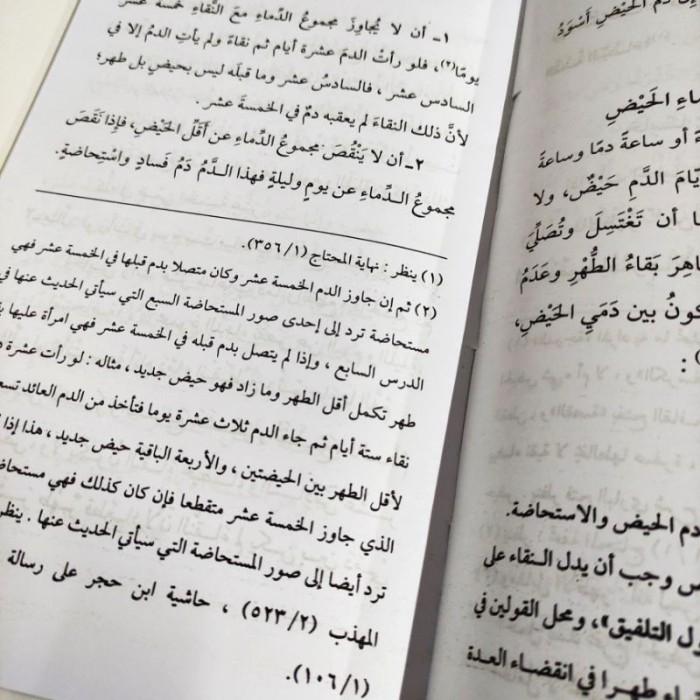 ١- أن لا يُجاوِزَ مجموعُ الدِّماءِ مَعَ النَّقاءِ خمسةَ عشرَ
يومًا(٢)، فلو رأتْ الدمَ عشرةَ أيام ثم نقاءً ولم يأتِ الدمُ إلا في
السادس عشر، فالسادسُ عشر وما قبلَه ليس بحيضٍ بل طهر؛
لأنَّ ذلك النقاءَ لم يعقبه دمٌ في الخمسةَ عشر.
٢- أن لا يَنْقُصَ مجموعُ الدِّماءِ عن أقَلِّ الحَيْضِ، فإذا نَقَصَ
مجموعُ الـدِّماءِ عن يومٍ وليلةٍ فهذا الـدَّمُ دَمُ فَسادٍ واسْتِحاضةٍ.
(١) ينظر: نهاية المحتاج (٣٥٦/١).
(٢) ثم إن جاوز الدم الخمسة عشر وكان متصلا بدم قبلها في الخمسة عشر فهي
مستحاضة ترد إلى إحدى صور المستحاضة السبع التي سيأتي الحديث عنها في
الدرس السابع، وإذا لم يتصل بدم قبله في الخمسة عشر فهي امرأة عليها
طهر تكمل أقل الطهر وما زاد فهو حيض جديد، مثاله: لو رأت عشرة
نقاء ستة أيام ثم جاء الدم ثلاث عشرة يوما فتأخذ من الدم العائد
لأقل الطهر بين الحيضتين، والأربعة الباقية حيض جديد، هذا إذا
الذي جاوز الخمسة عشر متقطعا فإن كان كذلك فهي
ترد أيضا إلى صور المستحاضة التي سيأتي الحديث عنها.
المهذب (٥٢٣/٢)، حاشية ابن حجر على رسالة
(١٠٦/١).
دم الحَيْضِ أَسْوَدُ
الحَيْضِ
أو ساعةَ دمًا وساعةَ
الدَّمِ حَيْضٌ، ولا
أن تَغْتَسِلَ وتُصَلِّيَ
بَقاءُ الطُّهْرِ وعَدَمُ
بين دَمَيِ الحَيْضِ،
دم الحيض والاستحاضة.
وجب أن يدل النقاء على
التلفيق»، ومحل القولين في
طهرا في انقضاء العدة